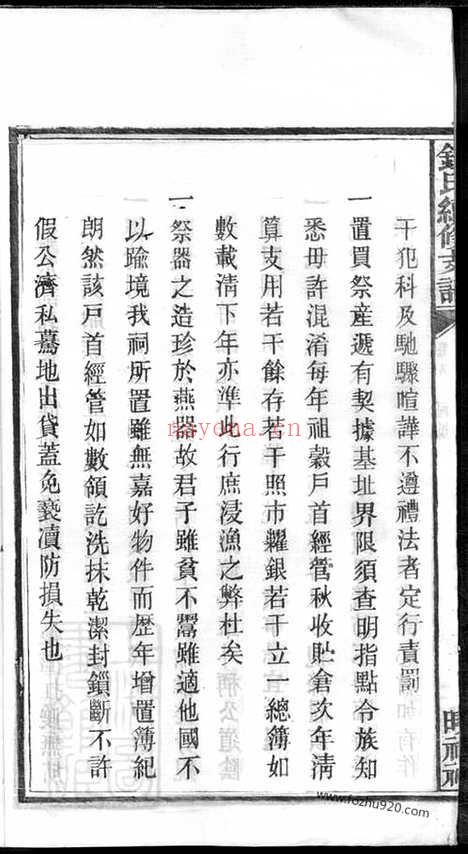 干犯科及馳驟喧譁不遵禮法者定行責罰
一置買祭產遞有契據基址界限須查明指點令族知
悉毋許混淆每年祖穀戶首經管秋收貯倉次年清
算支用若干餘存若干照市糶銀若干立一總簿如
數載清下年亦準此行庶浸漁之弊杜矣
一祭器之造珍於燕器故君子雖貧不鬻雖適他國不
以踰境我祠所置雖無嘉好物件而歷年增置簿紀
朗然該戶首經管如數領訖洗抹乾潔封鎖斷不許
假公濟私驀地出貸蓋免褻瀆防損失也
氏續修支譜
nayona.cn
www.fozhu920.com